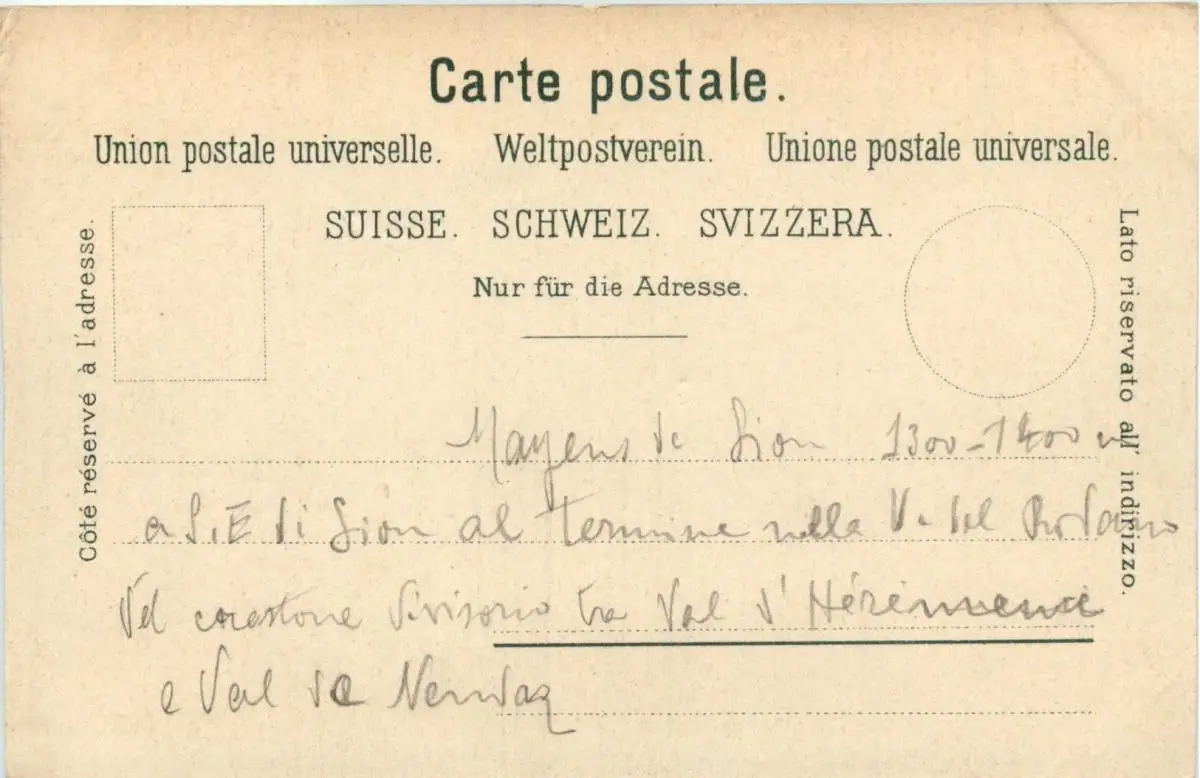 Carte postale.
Union postale universelle. Weltpostverein. Unione postale universale.
SUISSE. SCHWEIZ. SVIZZERA.
Nur für die Adresse.
Côté réservé à l'adresse.
Lato riservato all' indirizzo.
Mayens de Sion 1300-1400 m
a S.E di Sion al termine nella V. del Rodano
del costone divisorio tra Val d'Hérémence
e Val de Nendaz